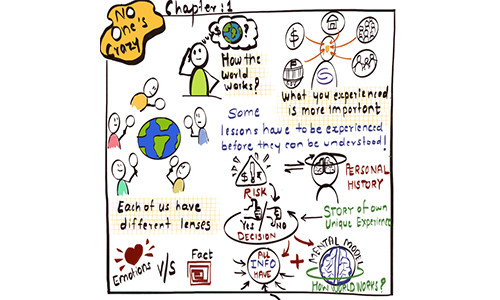 No
One's
Crazy
Chapter:1
How the
world
works?
$
S
What you experienced
is more important
Some
lessons have to be experienced
before they can be understood!
Each of us have
different lenses
$
RISK
PERSONAL
HISTORY
Yes / NO
DECISION
STORY OF OWN
Unique Experience
Emotions
V/S
Fact
ALL
INFO
HAVE
+
MENTAL MODEL
HOW WORLD WORKS?